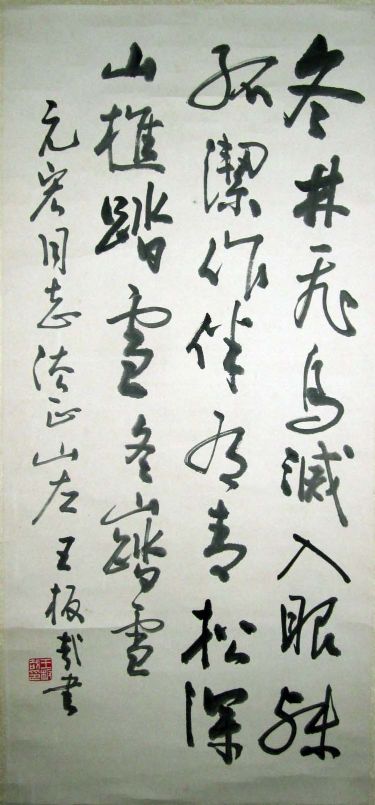 冬林飛鳥滅入眼殊
孤潔作伴有青松深
山樵踏雪冬山踏雪
元宏同志法正山左王板哉書